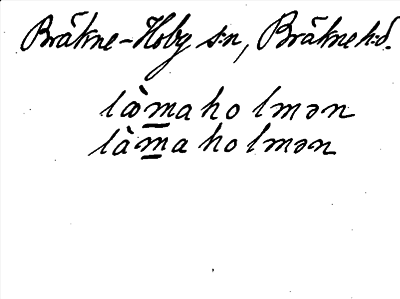 Bräkne-Hoby s:n, Bräkne h:d.
lòm̲aholmən
làm̲aholmən